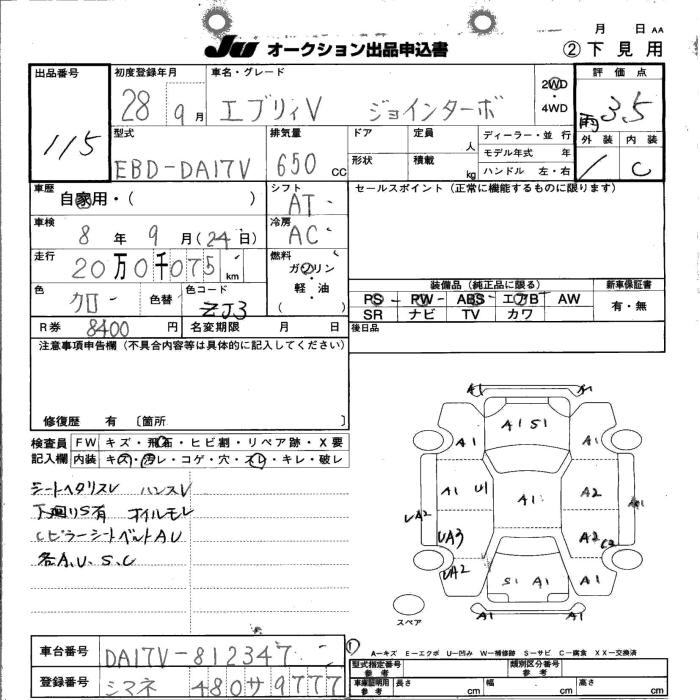 月 日 AA
JU オークション出品申込書 ②下見用
出品番号 初度登録年月 車名・グレード 2WD ・ 4WD 評価点
115 28 9月 エブリィV ジョインターボ 3.5
型式 排気量 ドア 定員 人 ディーラー・並行 外装 内装
EBD-DA17V 650 CC 形状 積載 kg モデル年式 年 C
ハンドル 左・右
車歴 自家用・( ) シフト AT セールスポイント (正常に機能するものに限ります)
車検 8年 9月(24日) 冷房 AC
走行 20万0千075 km 燃料 ガソリン・軽・油 ( )
装備品 (純正品に限る) 新車保証書
色 クロ 色替 色コード ZJ3 PS PW ABS エアB AW 有・無
SR ナビ TV カワ
R券 8400円 名変期限 月 日 後日品
注意事項申告欄 (不具合内容等は具体的に記入してください)
修復歴 有 〔箇所 〕
検査員 FW キズ・飛石・ヒビ割・リペア跡・X要
記入欄 内装 キズ・汚レ・コゲ・穴・スレ・キレ・破レ
シートヘタリスレ ハンスレ
下廻りS有 オイルモレ
CピラーシートベルトAU
各A、U、S、C
A1
A1 S1
A1 A1
A1 U1 A1 A2
UA2 UA3 A2 C2
UA2 S1 A1 A1
A1
スペア
A−キズ E−エクボ U−凹み W−補修跡 S−サビ C−腐食 XX−交換済
車台番号 DA17V-812347
型式指定番号 参考 類別区分番号 参考
登録番号 シマネ 480 サ 9777
車庫証明用 参考 長さ cm 幅 cm 高さ cm